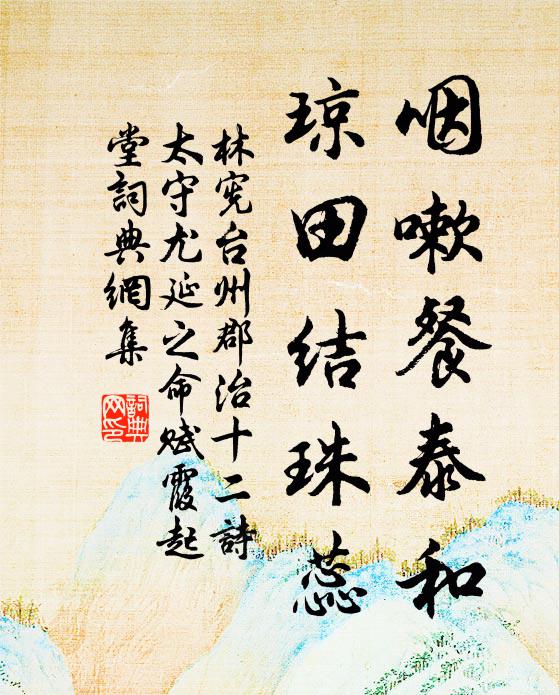 咽嗽餐泰和
琼田结珠蕊
林宪台州郡治十二詩
太守尤延之命赋霞起
堂詞典網集
詞典
网印